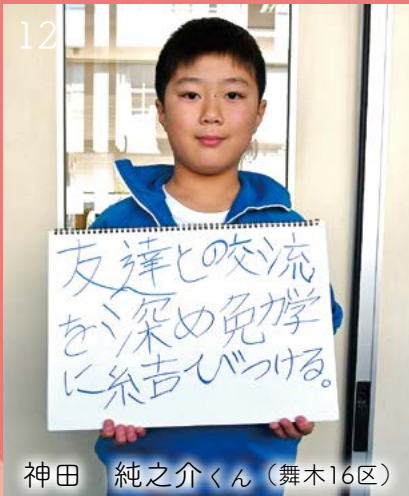 12
友達との交流
を深め勉学
に結びつける。
神田 純之介くん（舞木16区）